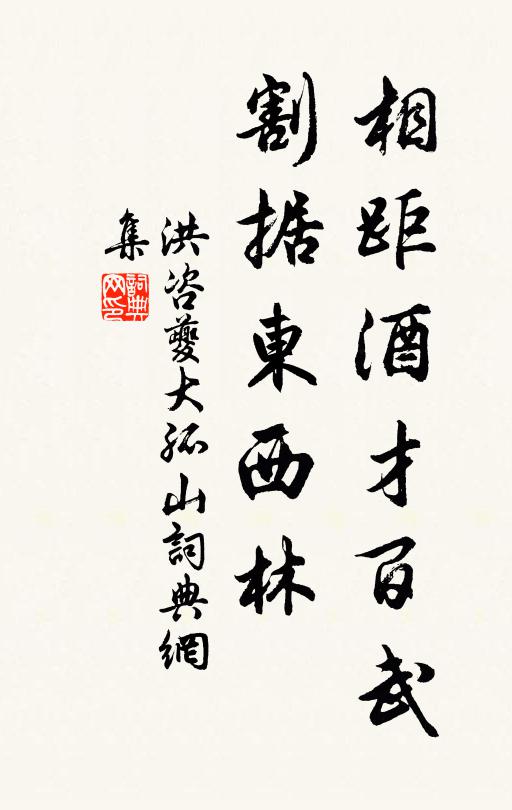 相距酒才百武
割据東西林
洪咨夔大孤山詞典網
集
詞典网印